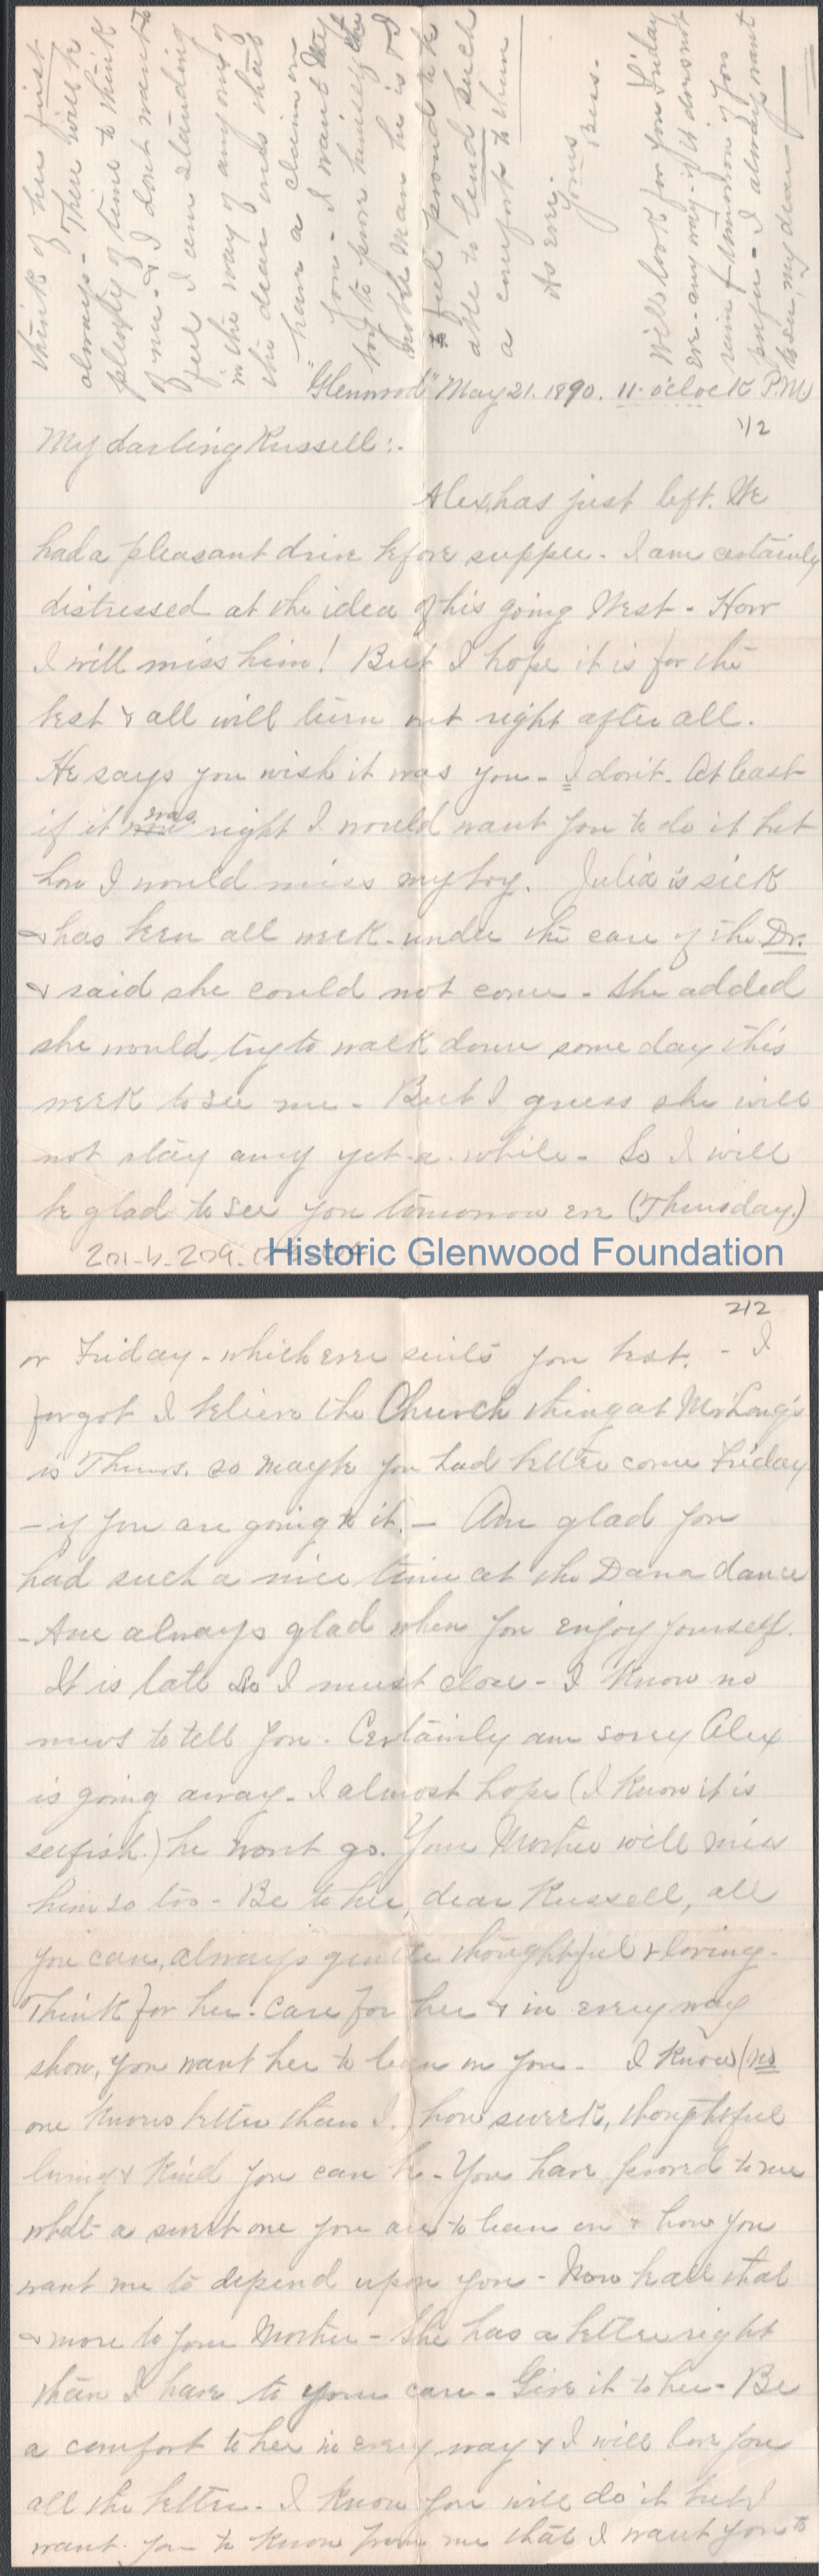 "Glenwood" May 21. 1890. 11. o'clock P.M
1/2
My darling Russell:.
Alex, has just left. We
had a pleasant drive before supper - I am certainly
distressed at the idea of his going West - How
I will miss him! But I hope it is for the
best & all will turn out right after all.
He says you wish it was you - I don't. At least
if it was right I would want you to do it but
how I would miss my boy. Julia is sick
& has been all week - under the care of the Dr.
& said she could not come - She added
she would try to walk down some day this
week to see me - But I guess she will
not stay away yet - a - while - So I will
be glad to see you tomorrow eve (Thursday.)
201-4-209.
Historic Glenwood Foundation
2/2
or Friday - which ever suits you best. - I
forgot I believe the Church thing at Mrs Long's
is Thurs. so maybe you had better come Friday
- if you are going to it. - Am glad you
had such a nice time at the Dana dance
- Am always glad when you enjoy yourself.
It is late So I must close - I know no
news to tell you. Certainly am sorry Alex
is going away - I almost hope (I know it is
selfish.) he wont go. Your Mother will miss
him so too - Be to her, dear Russell, all
you can, always gentle thoughtful & loving -
Think for her - care for her & in every way
show, you want her to lean on you - I know (no
one knows better than I.) how sweet, thoughtful
loving & kind you can be - You have proved to me
what a sweet one you are to lean on & how you
want me to depend upon you - Now be all that
& more to your Mother - She has a better right
than I have to your care - Give it to her - Be
a comfort to her in every way & I will love you
all the better - I know you will do it but I
want you to know from me that I want you to
think of her first
always - There will be
plenty of time to think
of me - & I dont want to
feel I am standing
in the way of any one of
the dear ones that
have a claim on
you - I want my
boy to prove himself the
noble man he is & I
to feel proud to be
able to lend such
a comfort to them
As ever
Yours
Bess -
Will look for you Friday
eve - any way - if it does not
rain & tomorrow if you
prefer - I always want
to see, my dear